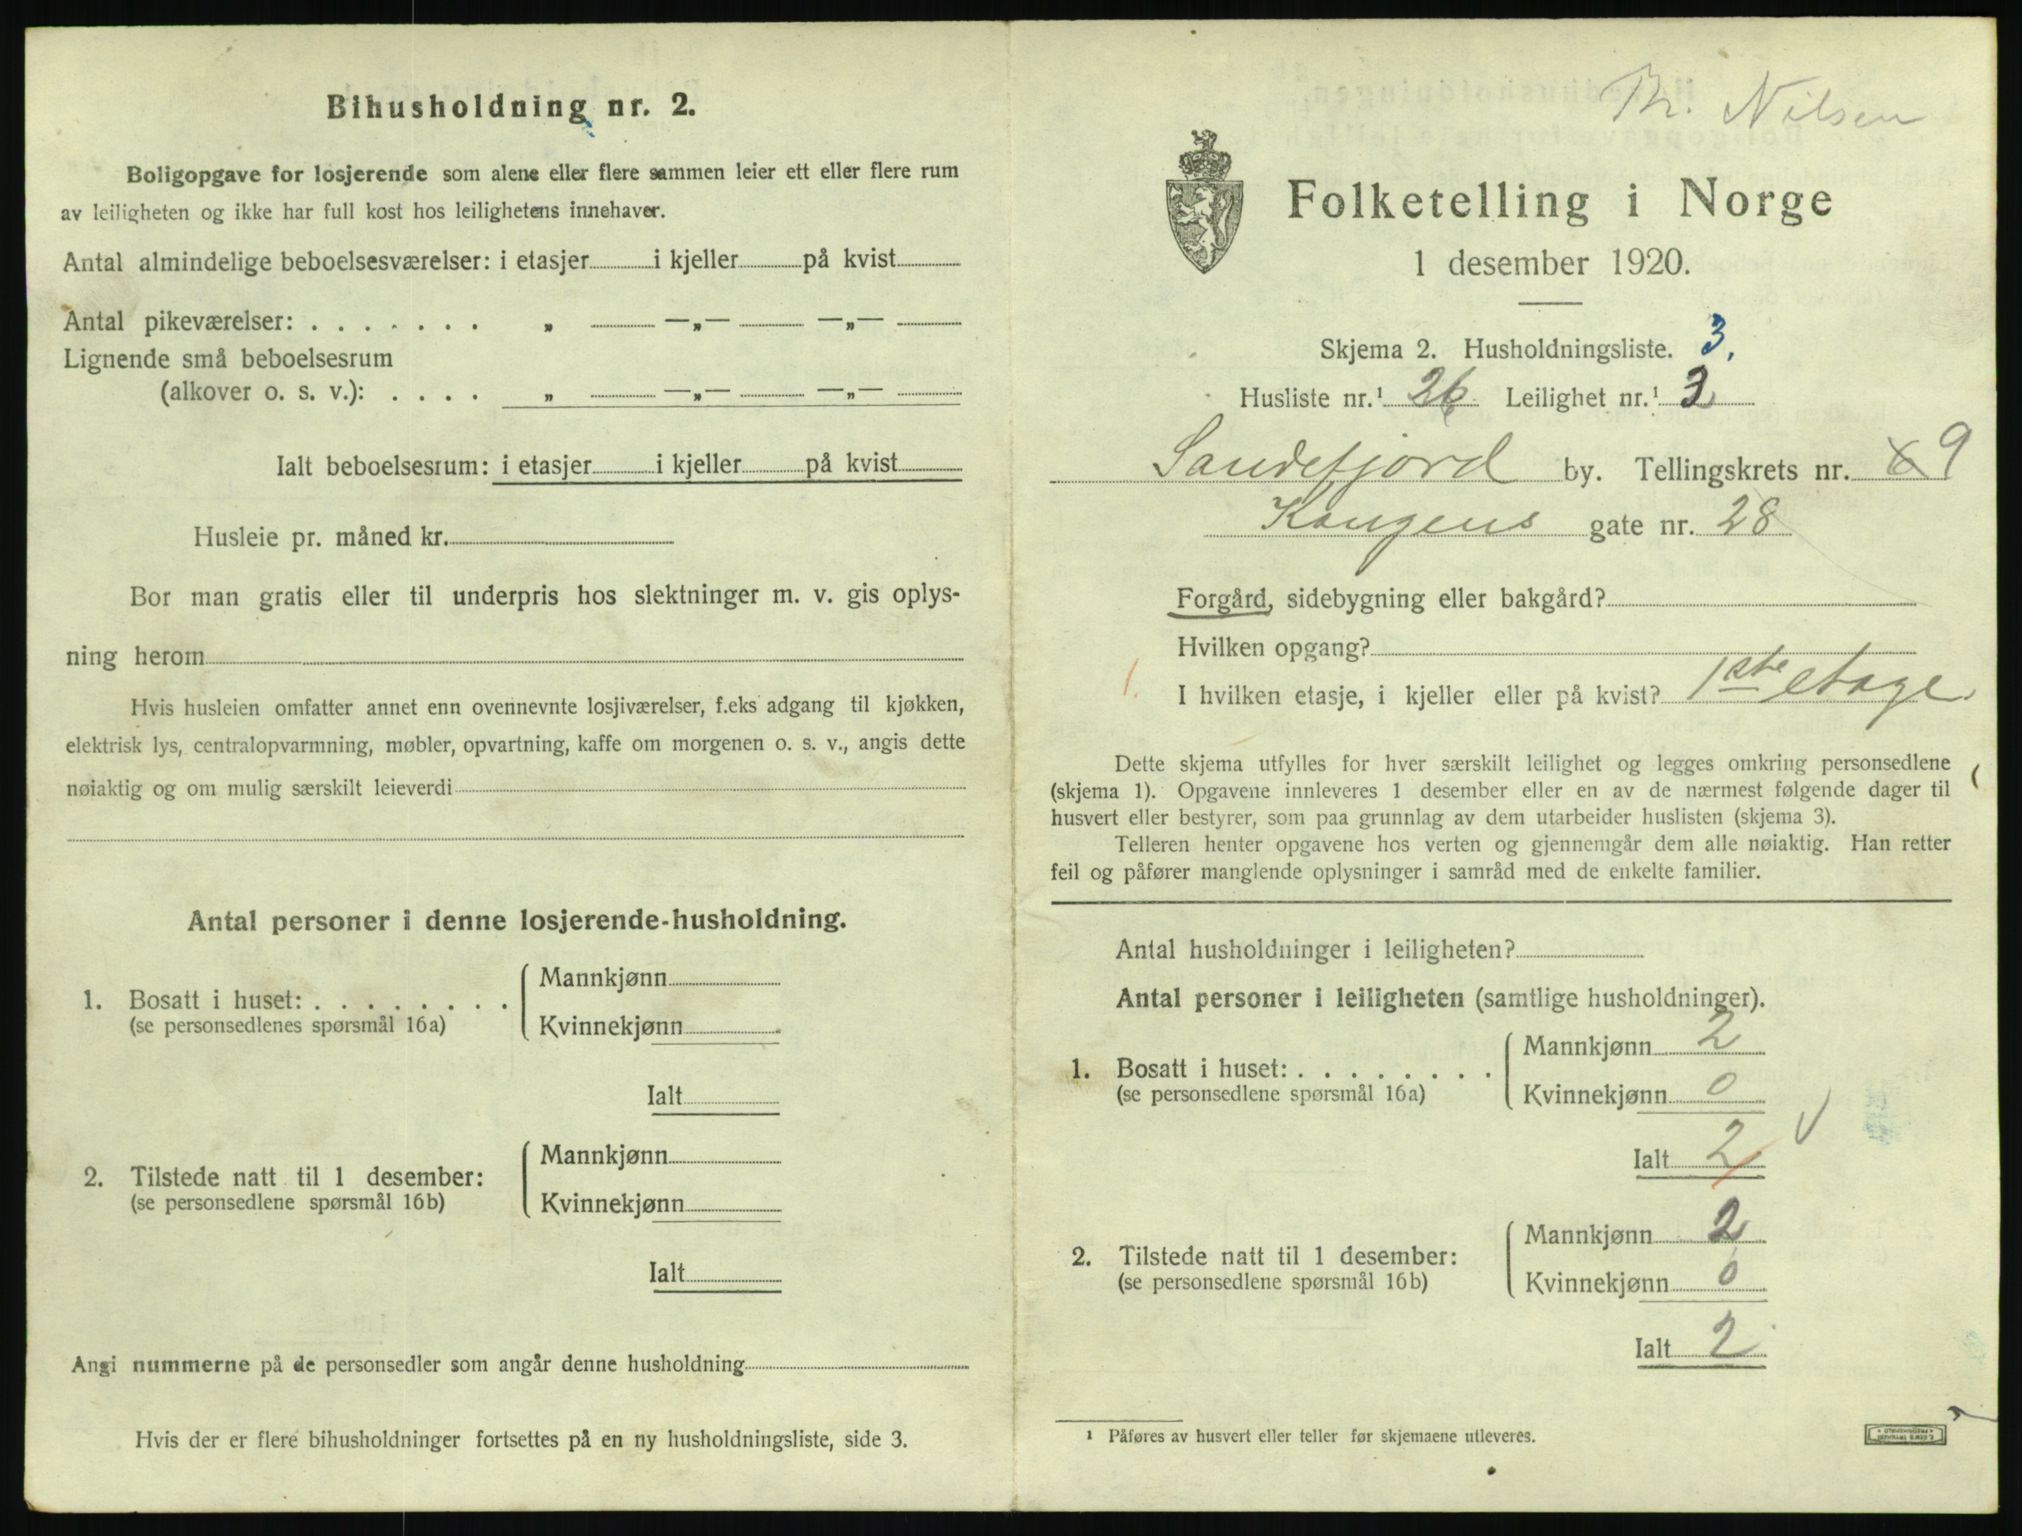 Bihusholdning nr. 2.
Boligopgave for losjerende som alene eller flere sammen leier ett eller flere rum
av leiligheten og ikke har full kost hos leilighetens innehaver.
Antal almindelige beboelsesværelser: i etasjer i kjeller på kvist
Antal pikeværelser: . . . . . . . „ —„— —„—
Lignende små beboelsesrum
(alkover o. s. v.): . . . . „ —„— —„—
Ialt beboelsesrum: i etasjer i kjeller på kvist
Husleie pr. måned kr.
Bor man gratis eller til underpris hos slektninger m. v. gis oplys-
ning herom
Hvis husleien omfatter annet enn ovennevnte losjiværelser, f.eks adgang til kjøkken,
elektrisk lys, centralopvarmning, møbler, opvartning, kaffe om morgenen o. s. v., angis dette
nøiaktig og om mulig særskilt leieverdi
Antal personer i denne losjerende-husholdning.
1. Bosatt i huset: . . . . . . . .
(se personsedlenes spørsmål 16a)
Mannkjønn
Kvinnekjønn
Ialt
2. Tilstede natt til 1 desember:
(se personsedlene spørsmål 16b)
Mannkjønn
Kvinnekjønn
Ialt
Angi nummerne på de personsedler som angår denne husholdning
Hvis der er flere bihusholdninger fortsettes på en ny husholdningsliste, side 3.
Th. Nilsen
Folketelling i Norge
1 desember 1920.
Skjema 2. Husholdningsliste. 3.
Husliste nr.¹ 26 Leilighet nr.¹ 3
Sandefjord by. Tellingskrets nr. 9
Kongens gate nr. 28
Forgård, sidebygning eller bakgård?
Hvilken opgang?
1.
I hvilken etasje, i kjeller eller på kvist? 1ste etage
Dette skjema utfylles for hver særskilt leilighet og legges omkring personsedlene
(skjema 1). Opgavene innleveres 1 desember eller en av de nærmest følgende dager til
husvert eller bestyrer, som paa grunnlag av dem utarbeider huslisten (skjema 3).
Telleren henter opgavene hos verten og gjennemgår dem alle nøiaktig. Han retter
feil og påfører manglende oplysninger i samråd med de enkelte familier.
Antal husholdninger i leiligheten?
Antal personer i leiligheten (samtlige husholdninger).
1. Bosatt i huset: . . . . . . . .
(se personsedlene spørsmål 16a)
Mannkjønn 2
Kvinnekjønn 0
Ialt 2
2. Tilstede natt til 1 desember:
(se personsedlene spørsmål 16b)
Mannkjønn 2
Kvinnekjønn 0
Ialt 2
¹ Påføres av husvert eller teller før skjemaene utleveres.